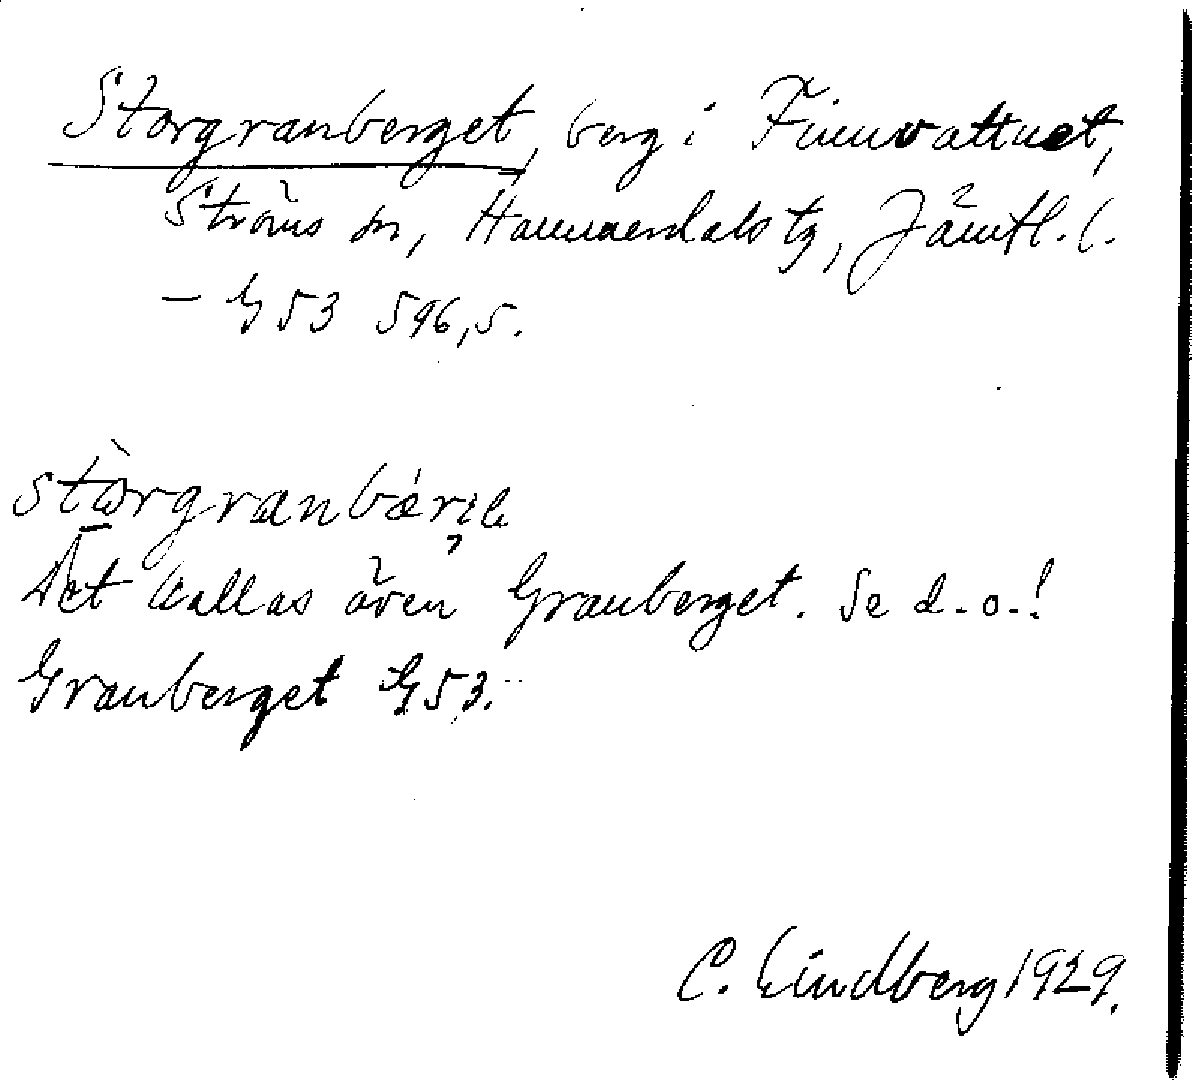 Storgranberget, berg i Finnvattnet,
Ströms sn, Hammerdals tg, Jämtl. l.
– G 53 596,5.
Det kallas även Granberget. Se d. o.!
Granberget G 53.
C. Lindberg 1929.